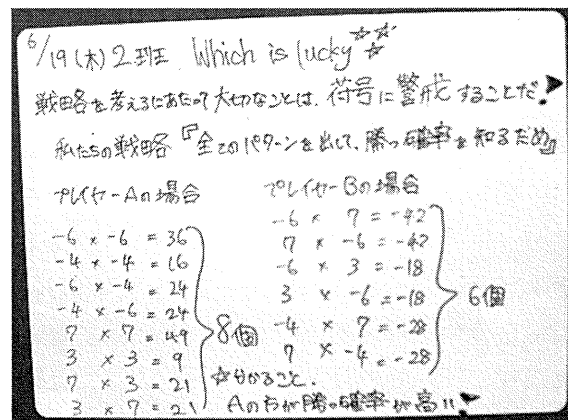 6/19(木) 2班 Which is lucky ☆☆☆
戦略を考えるにあたって大切なことは、符号に警戒することだ!
私たちの戦略『全てのパターンを出して、勝つ確率を知るだめ』
プレイヤーAの場合
-6 × -6 = 36
-4 × -4 = 16
-6 × -4 = 24
-4 × -6 = 24
7 × 7 = 49
3 × 3 = 9
7 × 3 = 21
3 × 7 = 21
8個
プレイヤーBの場合
-6 × 7 = -42
7 × -6 = -42
-6 × 3 = -18
3 × -6 = -18
-4 × 7 = -28
7 × -4 = -28
6個
☆分かること.
Aの方が勝つ確率が高い!